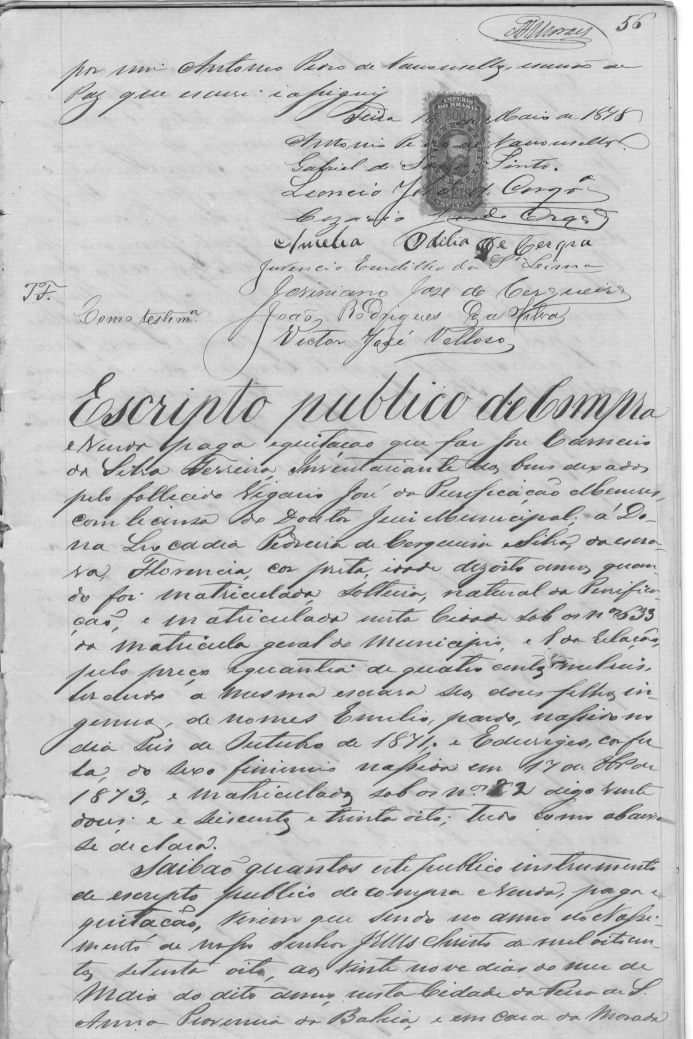 56
por mim Antonio Pedro de escrivão de
Paz que escrevi e assignei
Feira de Maio de 1878
Antonio Pedro de
Gabriel de Pinto.
Leoncio José de Cerqrª
Cezario
Amelia Odilia de Cerqra
Juvencio Emidilho da Sª Leima
T.F. Joviniano José de Cerqueira
Como testemª João Rodrigues da Silva
Victor José Velloso
IMPERIO DO BRASIL
Escripto publico de Compra
e Venda paga e quitacão que faz José Carneiro
da Silva Ferreira Inventariante dos bens deixados
pelo fallecido Vigario José da Purificação Menezes,
com licensa do Doutor Juiz Municipal, á Do-
na Leocadia Pedreira de Cerqueira e Silva, da escra-
va, Florencia, cor preta, idade dezoito annos quan-
do foi matriculada, Solteira, natural da Purifi-
cação, e matriculada nesta Cidade sob os nºs 633
da matricula geral do Municipio, e 8 da relação,
pelo preço e quantia de quatro centos mil reis,
tendo a mesma escrava seus dous filhos in-
genuos, de nomes Emilio, pardo, nassido no
dia seis de Outubro de 1871, e Eduviges, cor fu-
la, do sexo feminino nassida em 17 de 8brº de
1873, e matriculados sob os nºs 22 digo vinte
dous e e seiscentos e trinta oito; tudo como abaixo
se declara.
Saibaõ quantos este publico instrumento
de escripto publico de compra e Venda, paga e
quitacão, virem que sendo no anno do Nassi-
mento de nosso Senhor Jesus Christo de mil oitocen-
tos setenta oito, aos vinte nove dias do mez de
Maio do dito anno, nesta Cidade da Feira de S.
Anna Provincia da Bahia, e em casa da Morada